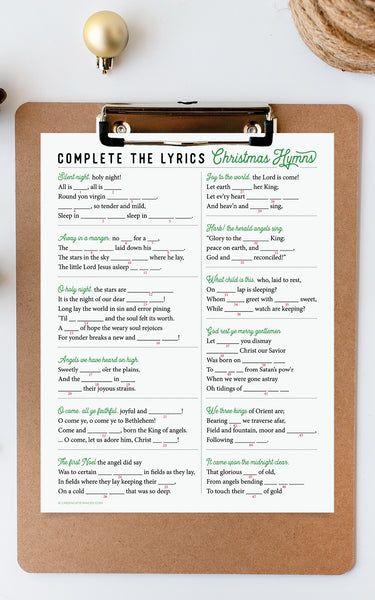 COMPLETE THE LYRICS Christmas Hymns
Silent night. holy night!
All is ____, all is ____
Round yon virgin ____ ____ ____.
____ ____, so tender and mild,
Sleep in ____ ____ sleep in ____ ____.
Away in a manger. no ____ for a ____,
The ____ ____ ____ laid down his ____ ____.
The stars in the sky ____ ____ where he lay,
The little Lord Jesus asleep ____ ____ ____.
O holy night. the stars are ____ ____
It is the night of our dear ____ ____!
Long lay the world in sin and error pining
'Til ____ ____ and the soul felt its worth.
A ____ of hope the weary soul rejoices
For yonder breaks a new and ____ ____!
Angels we have heard on high.
Sweetly ____ o'er the plains,
And the ____ ____ in ____
____ their joyous strains.
O come, all ye faithful. joyful and ____!
O come ye, o come ye to Bethlehem!
Come and ____ ____, born the King of angels.
... O come, let us adore him, Christ ____ ____!
The first Noel the angel did say
Was to certain ____ ____ in fields as they lay,
In fields where they lay keeping their ____,
On a cold ____ ____ that was so deep.
Joy to the world. the Lord is come!
Let earth ____ her King;
Let ev'ry heart ____ ____ ____
And heav'n and ____ sing,
Hark! the herald angels sing.
"Glory to the ____ King;
peace on earth, and ____ ____,
God and ____ reconciled!"
What child is this. who, laid to rest,
On ____ lap is sleeping?
Whom ____ greet with ____ sweet,
While ____ watch are keeping?
God rest ye merry gentlemen
Let ____ you dismay
____ Christ our Savior
Was born on ____ ____
To ____ ____ from Satan's pow'r
When we were gone astray
Oh tidings of ____ ____
We three kings of Orient are;
Bearing ____ we traverse afar,
Field and fountain, moor and ____,
Following ____ ____.
It came upon the midnight clear.
That glorious ____ of old,
From angels bending ____ ____ ____
To touch their ____ of gold